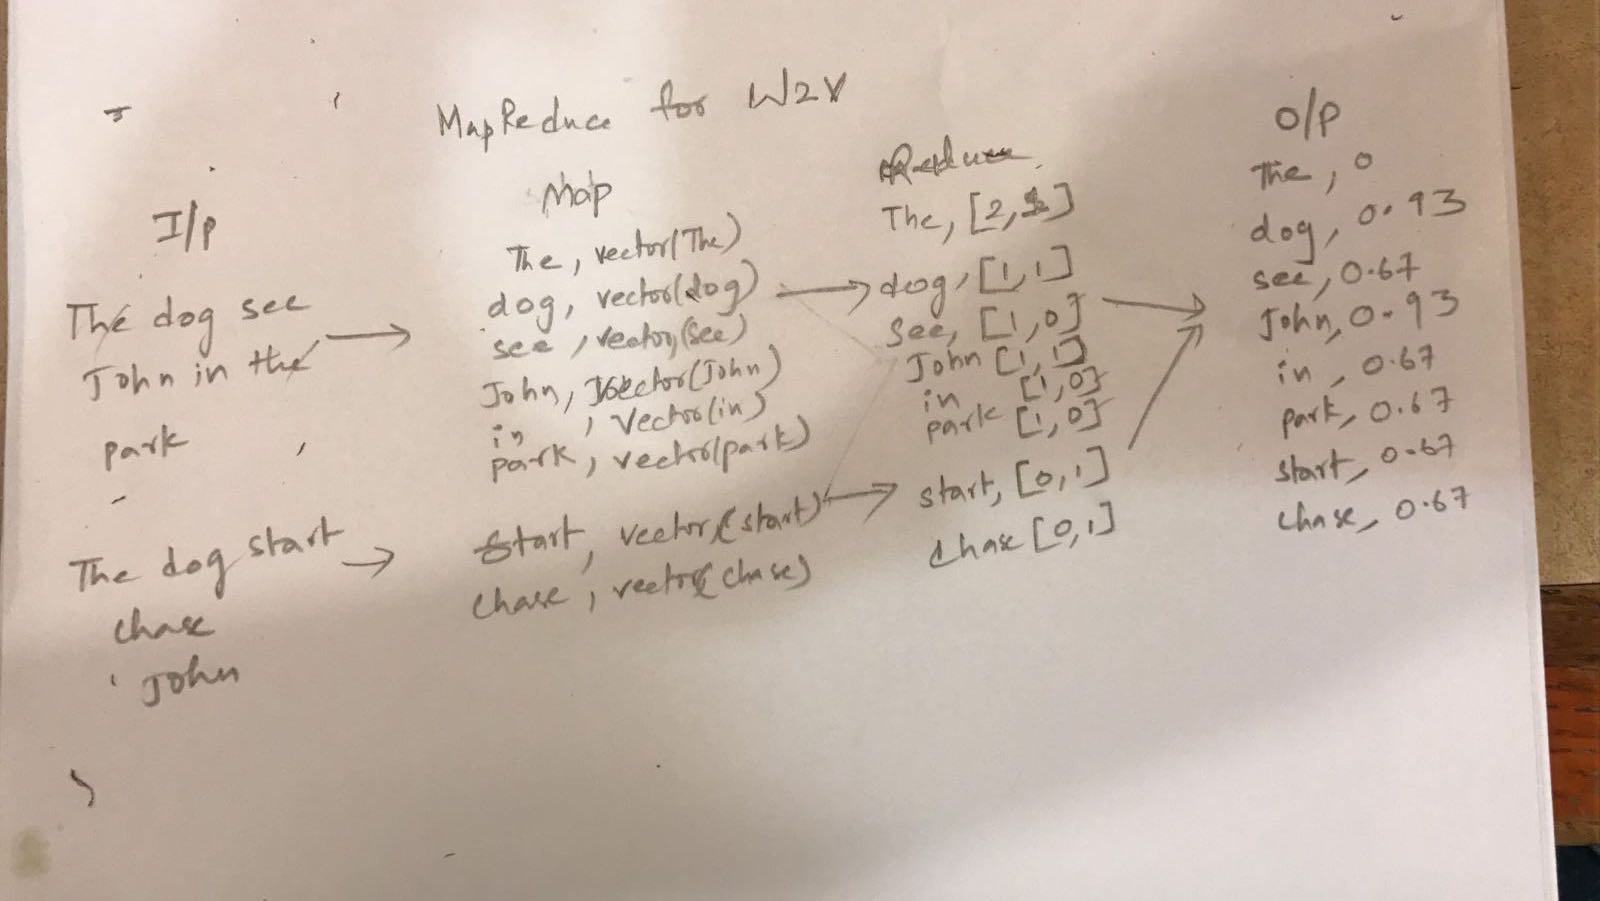 MapReduce for W2V
I/p
The dog see
John in the
park
The dog start
chase
John
Map
The, vector(The)
dog, vector(dog)
see, vector(see)
John, vector(John)
in, Vector(in)
park, vector(park)
Start, vector(start)
chase, vector(chase)
Reduce
The, [2,1]
dog, [1,1]
See, [1,0]
John [1,1]
in [1,0]
park [1,0]
start, [0,1]
chase [0,1]
O/p
The, 0
dog, 0.93
see, 0.67
John, 0.93
in, 0.67
park, 0.67
start, 0.67
chase, 0.67